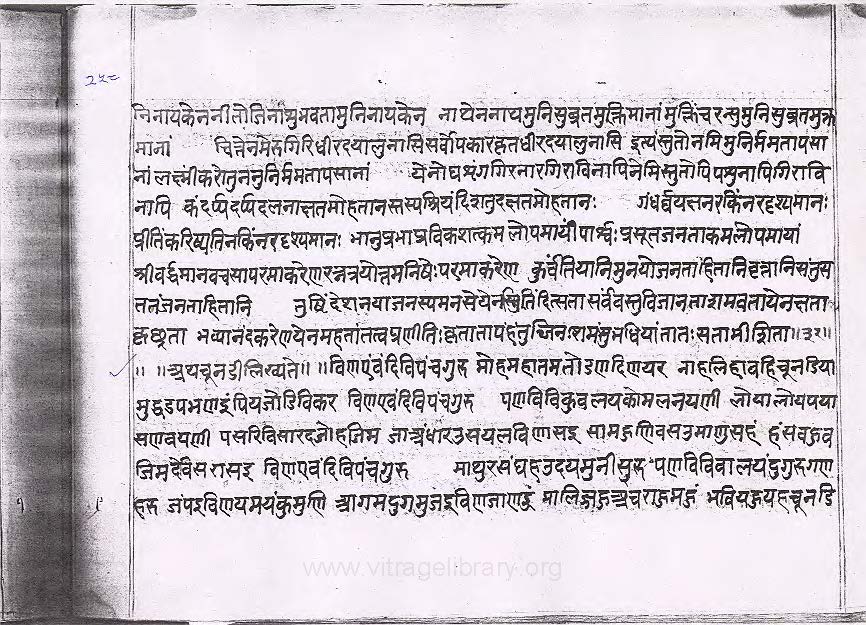 २५०
निनायकेननीतोजिनांघ्रुभवतामुनिनायकेन नाथेननाथमुनिसुव्रतमुक्तिमानांमुक्तिंचरन्सुमुनिसुव्रतमुक्त
मानां चित्तेनमेरुगिरिधीरदयालुनासिसर्वोपकारहृतधीरदयालुनासि इत्थंस्तुतोनमिमुनिर्ममतापसा
नांलक्ष्मीकरोतुननुनिर्ममतापसानां येनोद्यशृंगगिरनारगिराविनापिनेमिस्तुतोपिपशुनापिगिरावि
नापि कंदर्प्पदर्प्पदलनाक्षतमोहतानस्तस्यश्रियंदिशतुदक्षतमोहतानः गंधर्व्वयक्षनरकिंनरदृश्यमानः
प्रीतिंकरिष्यतिनकिंनरदृश्यमानः भानुप्रभाप्रविकशात्कमलोपमायांपार्श्वःप्रसूतजनताकमलोपमायां
श्रीवर्द्धमानवचसापरमाकरेणरत्नत्रयोत्तमनिधेःपरमाकरेण कुर्वंतियानिमुनयोजनताहितानिवृत्तानिसंतुस
ततंजनताहितानि
भव्यानंदकरेणयेनमहतांतत्वप्रणीतिःकृता
॥ ॥अथचूनडीलिख्यते॥ ॥विणएंवंदिविपंचगुरु मोहमहातमतोडणदिणयर नाहलिहावहिचूनडिया
मुद्धउपभणइंपियजोडिविकर विणएंवंदिविपंचगुरु पणविविकुवलयकोमलनयणी लोयालोयपया
सणवयणी पसरिविसारदजोहजिम जाअंधारउसयलविणासइ सामहुणिवसउमाणुसहं हंसवहुव
जिमदेविसरासइ विणएंवंदिविपंचगुरु माथुरसंघहउदयमुनीसुरु पणविविवालयंदुगुरुगण
हरु जंपइविणयमयंकुमुणि आगमदुगमुजइविणजाणउं मालिज्जहुअवराहुमहुं भवियहुयहुचूनडि
१
www.vitragelibrary.org